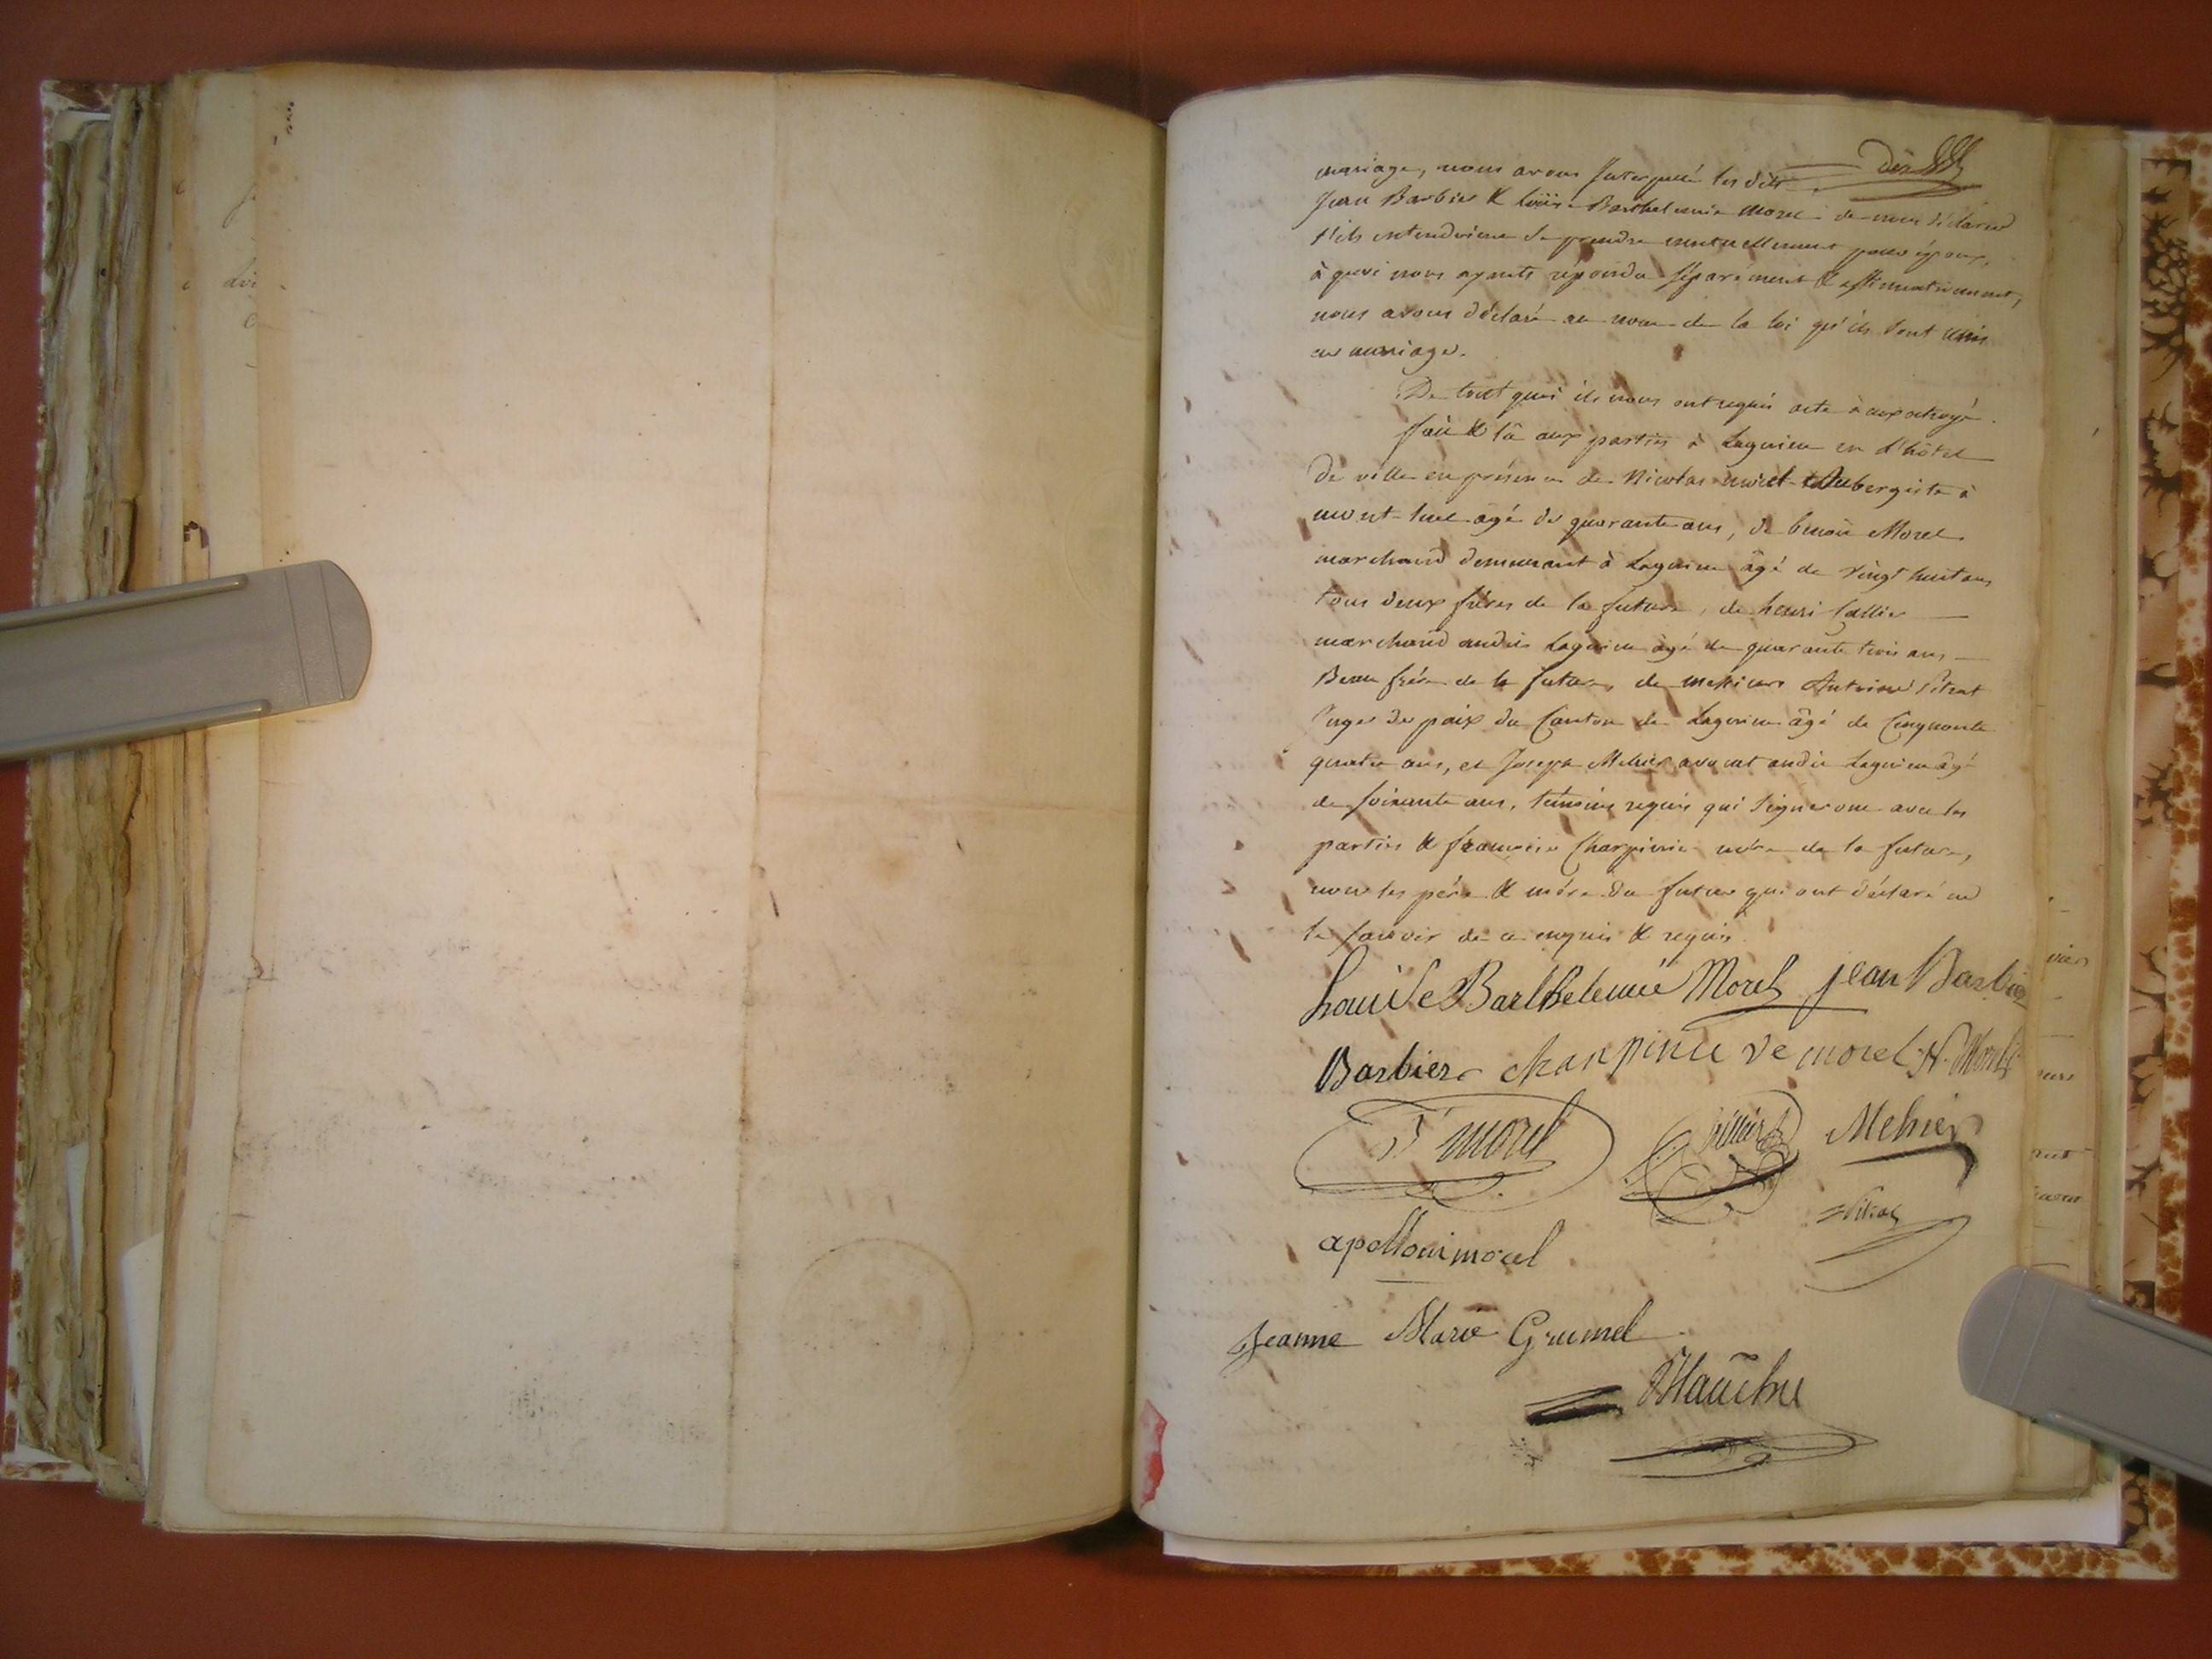 dix
mariage, nous avons interpellé les dits
Jean Barbier & Loüise Barthelemie Morel de nous déclarer
s'ils entendoient se prendre mutuellement pour époux,
à quoi nous ayants répondu séparément & affirmativement,
nous avons déclaré au nom de la loi qu'ils sont unis
en mariage.
De tout quoi ils nous ont requis acte à eux octroyé.
fait & lû aux parties à Lagnieu en l'hôtel
de ville en présence de Nicolas morel Aubergiste à
mont-luel âgé de quarante ans, de benoit Morel
marchand demeurant à Lagnieu âgé de vingt huit ans
tous deux frères de la future, de henri
marchand audit Lagnieu âgé de quarante trois ans
Beau frère de la future, de messieurs Antoine Pitrat
Juge de paix du Canton de Lagnieu âgé de Cinquante
quatre ans, et Joseph Mehier avocat audit Lagnieu âgé
de soixante ans, témoins requis qui signeront avec les
parties & françoise Charpinie mère de la future,
non les père & mère du futur qui ont déclaré ne
le savoir de ce enquis & requis.
Louise Barthelemie Morel jean Barbier
Barbier charpinie ve morel N. Morel
morel Mehier
Pitrat
apolloni morel
Jeanne Marie Grumel